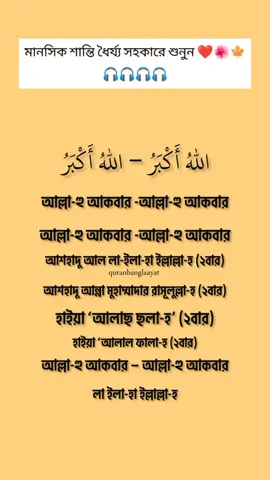 মানসিক শান্তি ধৈর্য্য সহকারে শুনুন ❤️🌺🍁
🎧🎧🎧🎧
اللهُ أَكْبَرُ – اللهُ أَكْبَرُ
আল্লা-হু আকবার -আল্লা-হু আকবার
আল্লা-হু আকবার -আল্লা-হু আকবার
আশহাদু আল লা-ইলা-হা ইল্লাল্লা-হ (২বার)
quranbanglaayat
আশহাদু আন্না মুহাম্মাদার রাসূলুল্লা-হ (২বার)
হাইয়া ‘আলাছ ছলা-হ’ (২বার)
হাইয়া ‘আলাল ফালা-হ (২বার)
আল্লা-হু আকবার – আল্লা-হু আকবার
লা ইলা-হা ইল্লাল্লা-হ